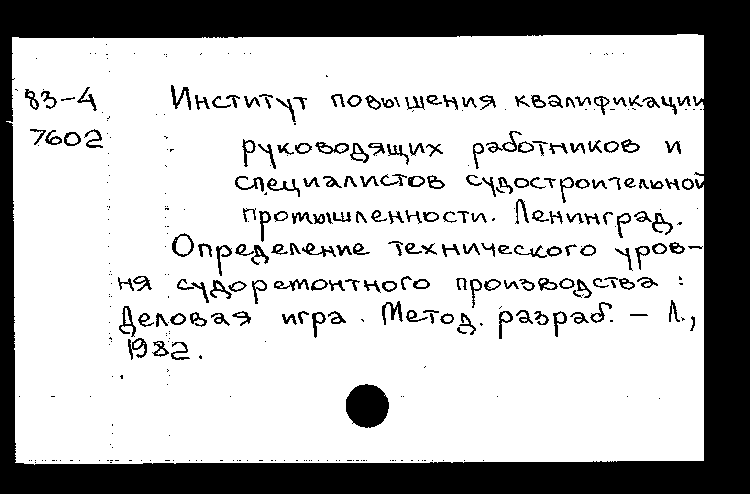 83-4 Институт повышения квалификации
7602 руководящих работников и
специалистов судостроительной
промышленности. Ленинград.
Определение технического уров-
ня судоремонтного производства :
Деловая игра. Метод. разраб. – Л.,
1982.